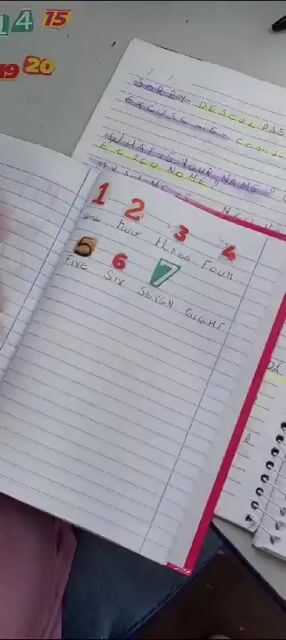 14 15
19 20
SORRY DESCULPAS
EXCUSE ME
WHAT IS YOUR NAME
E O SEU NOME
MY
1 2 3 4
ONE TWO THREE FOUR
5 6 7
FIVE SIX SEVEN EIGHT